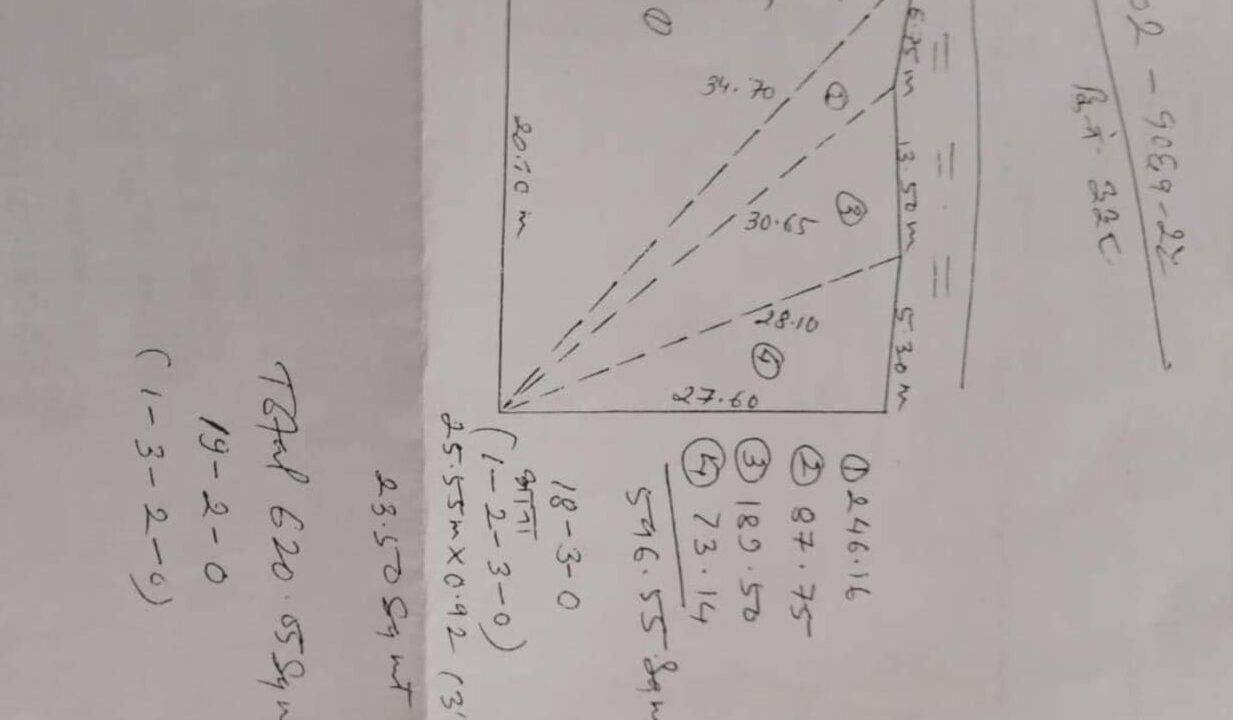 ①
6.75 m
34.70
②
13.50 m
20.10 m
③
30.65
5.30 m
28.10
④
27.60
① 246.16
② 87.75
③ 189.50
④ 73.14
596.55 Sqm
18-3-0
(1-2-3-0)
25.55m X 0.92 (3'
23.50 Sq mt
Total 620.05 Sqm
19-2-0
(1-3-2-0)